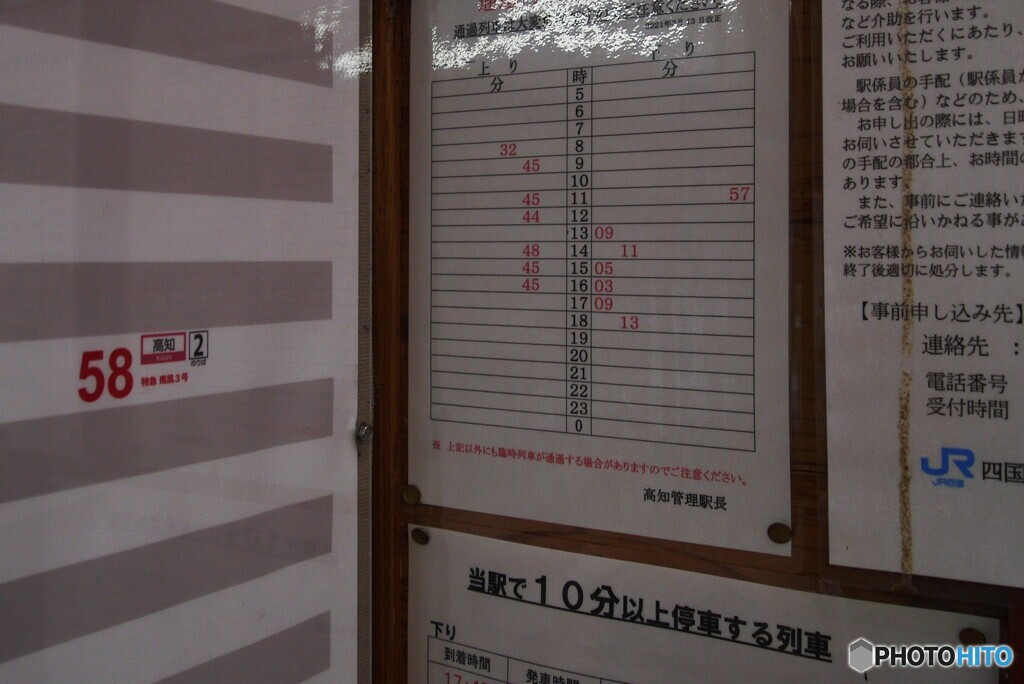 58
高知
2
のりば
特急 南風3号
通過列車は大変
ください。
2021年3月13日改正
上り
下り
分 時 分
5
6
7
32 8
45 9
10
45 11 57
44 12
13 09
48 14 11
45 15 05
45 16 03
17 09
18 13
19
20
21
22
23
0
※ 上記以外にも臨時列車が通過する場合がありますのでご注意ください。
高知管理駅長
当駅で10分以上停車する列車
下り
到着時間 発車時間
など介助を行います。
ご利用いただくにあたり、
お願いいたします。
駅係員の手配（駅係員が
場合を含む）などのため、
お申し出の際には、日時
お伺いさせていただきます
の手配の都合上、お時間の
あります。
また、事前にご連絡いた
ご希望に沿いかねる事が
※お客様からお伺いした情報
終了後適切に処分します。
【事前申し込み先】
連絡先 ：
電話番号
受付時間
JR 四国
JR四国
PHOTOHITO